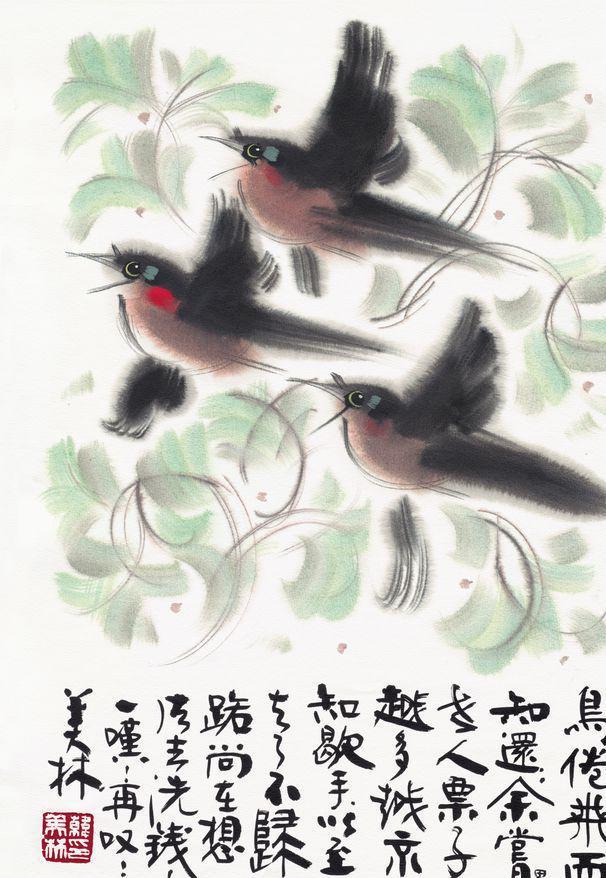 鳥倦飛而
知還：余嘗
人票子
越多越
知歇手以至
去了不歸
路尚在想
法去洗錢
一嘆：再叹：
美林
韓美林印